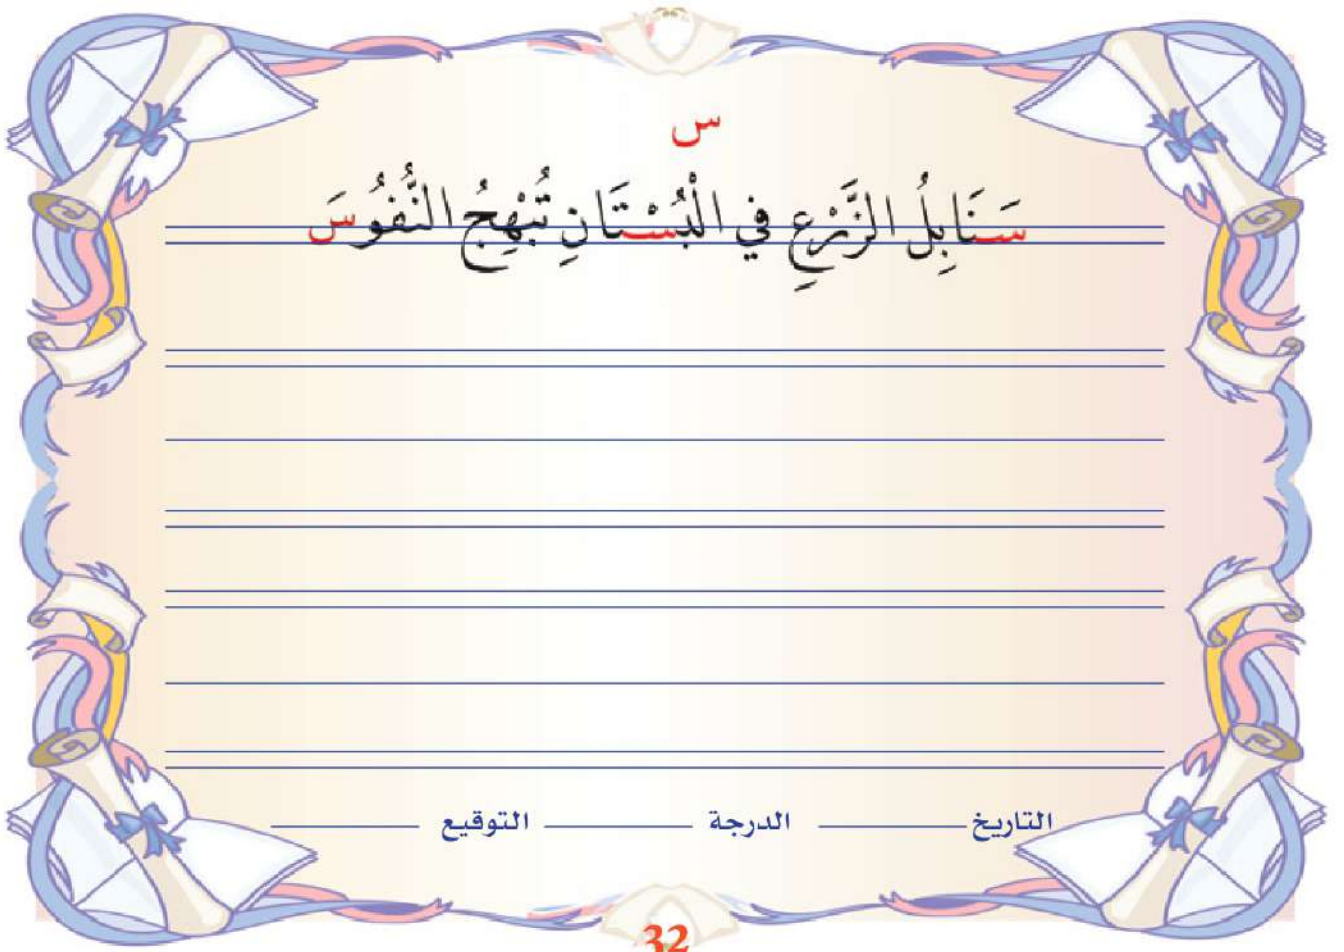 س
سَنَابِلُ الزَّرْعِ في الْبُسْتَانِ تُبْهِجُ النُّفُوسَ
التاريخ الدرجة التوقيع
32